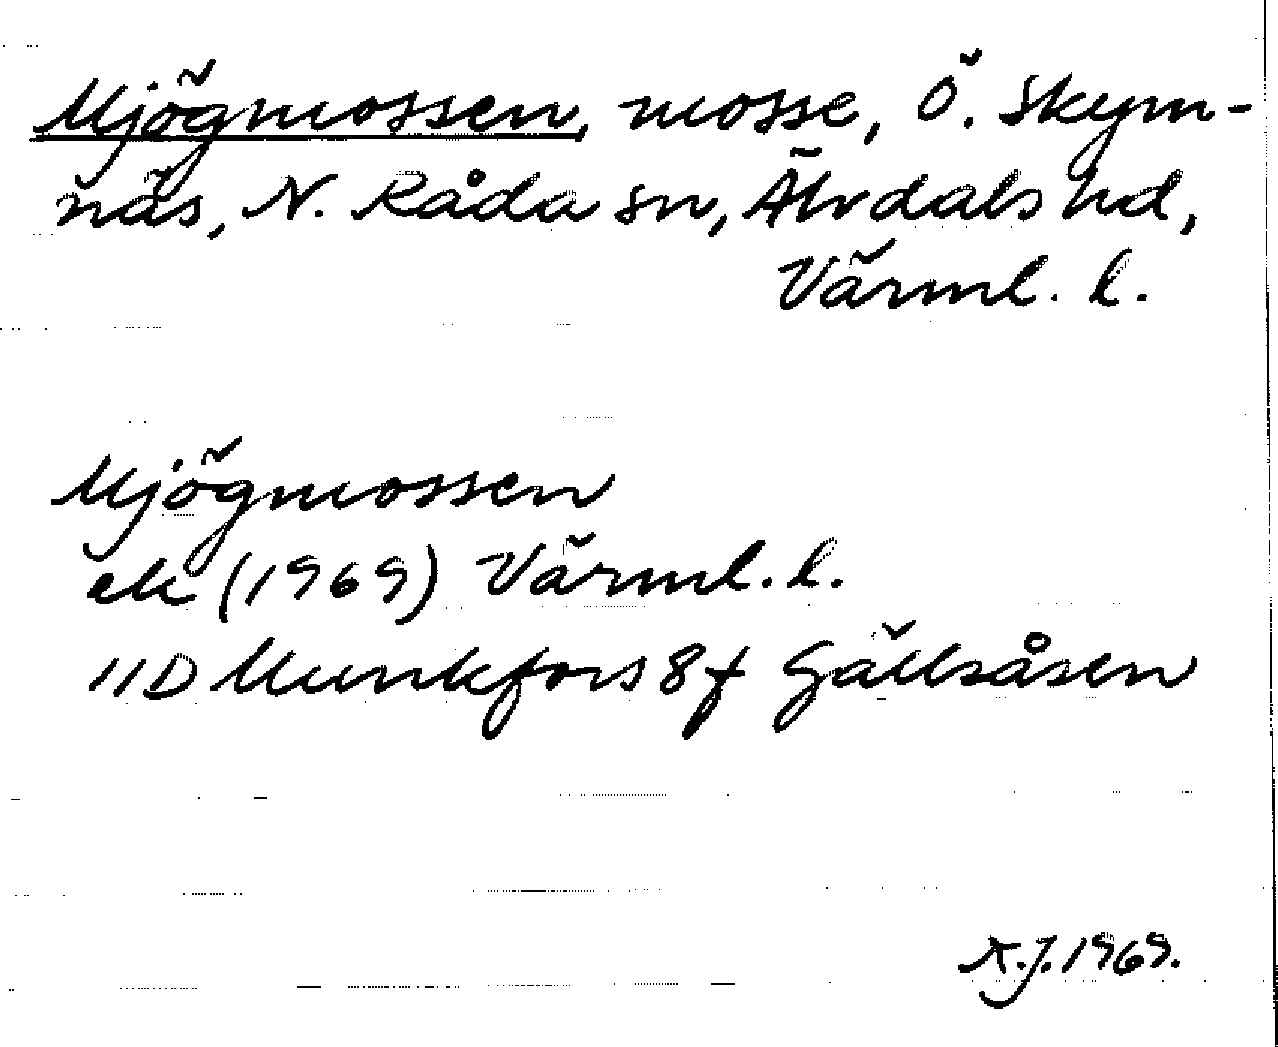 Mjögmossen, mosse, Ö. Skym-
näs, N. Råda sn, Älvdals hd,
Värml. l.
Mjögmossen
ek (1969) Värml. l.
11D Munkfors 8f Gällsåsen
A.J. 1969.